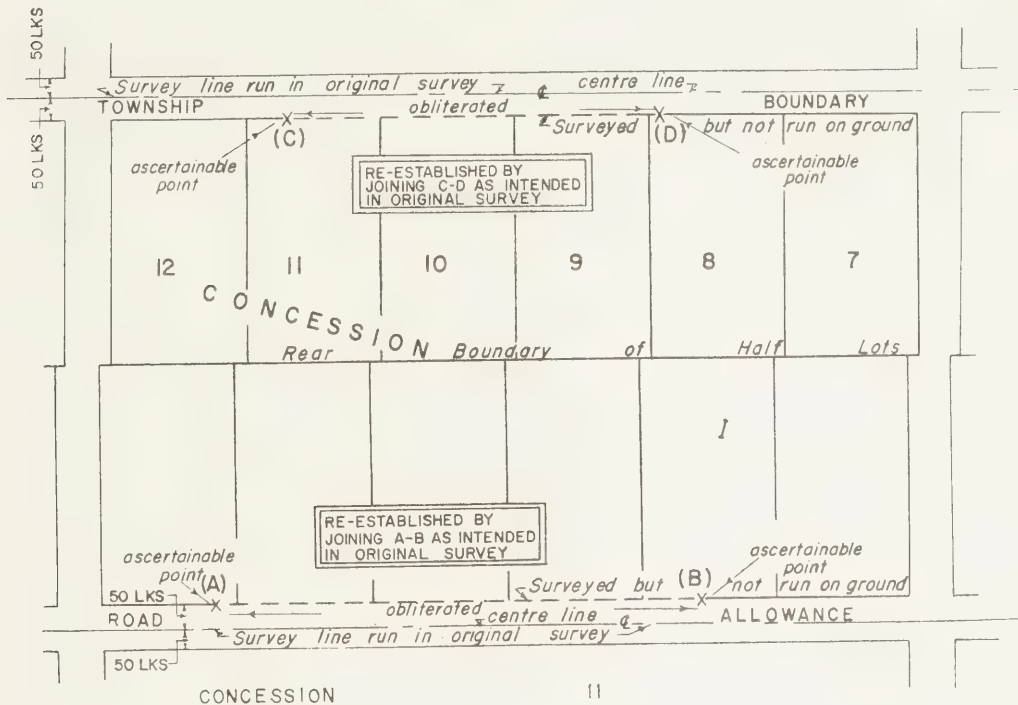 50 LKS
50 LKS
Survey line run in original survey ℄ centre line
TOWNSHIP obliterated BOUNDARY
(C) Surveyed (D) but not run on ground
ascertainable point
ascertainable point
RE-ESTABLISHED BY
JOINING C-D AS INTENDED
IN ORIGINAL SURVEY
12 11 10 9 8 7
CONCESSION
Rear Boundary of Half Lots
I
RE-ESTABLISHED BY
JOINING A-B AS INTENDED
IN ORIGINAL SURVEY
ascertainable point
ascertainable point
(A) Surveyed but (B) not run on ground
50 LKS
obliterated
ROAD centre line ℄ ALLOWANCE
Survey line run in original survey
50 LKS
CONCESSION 11